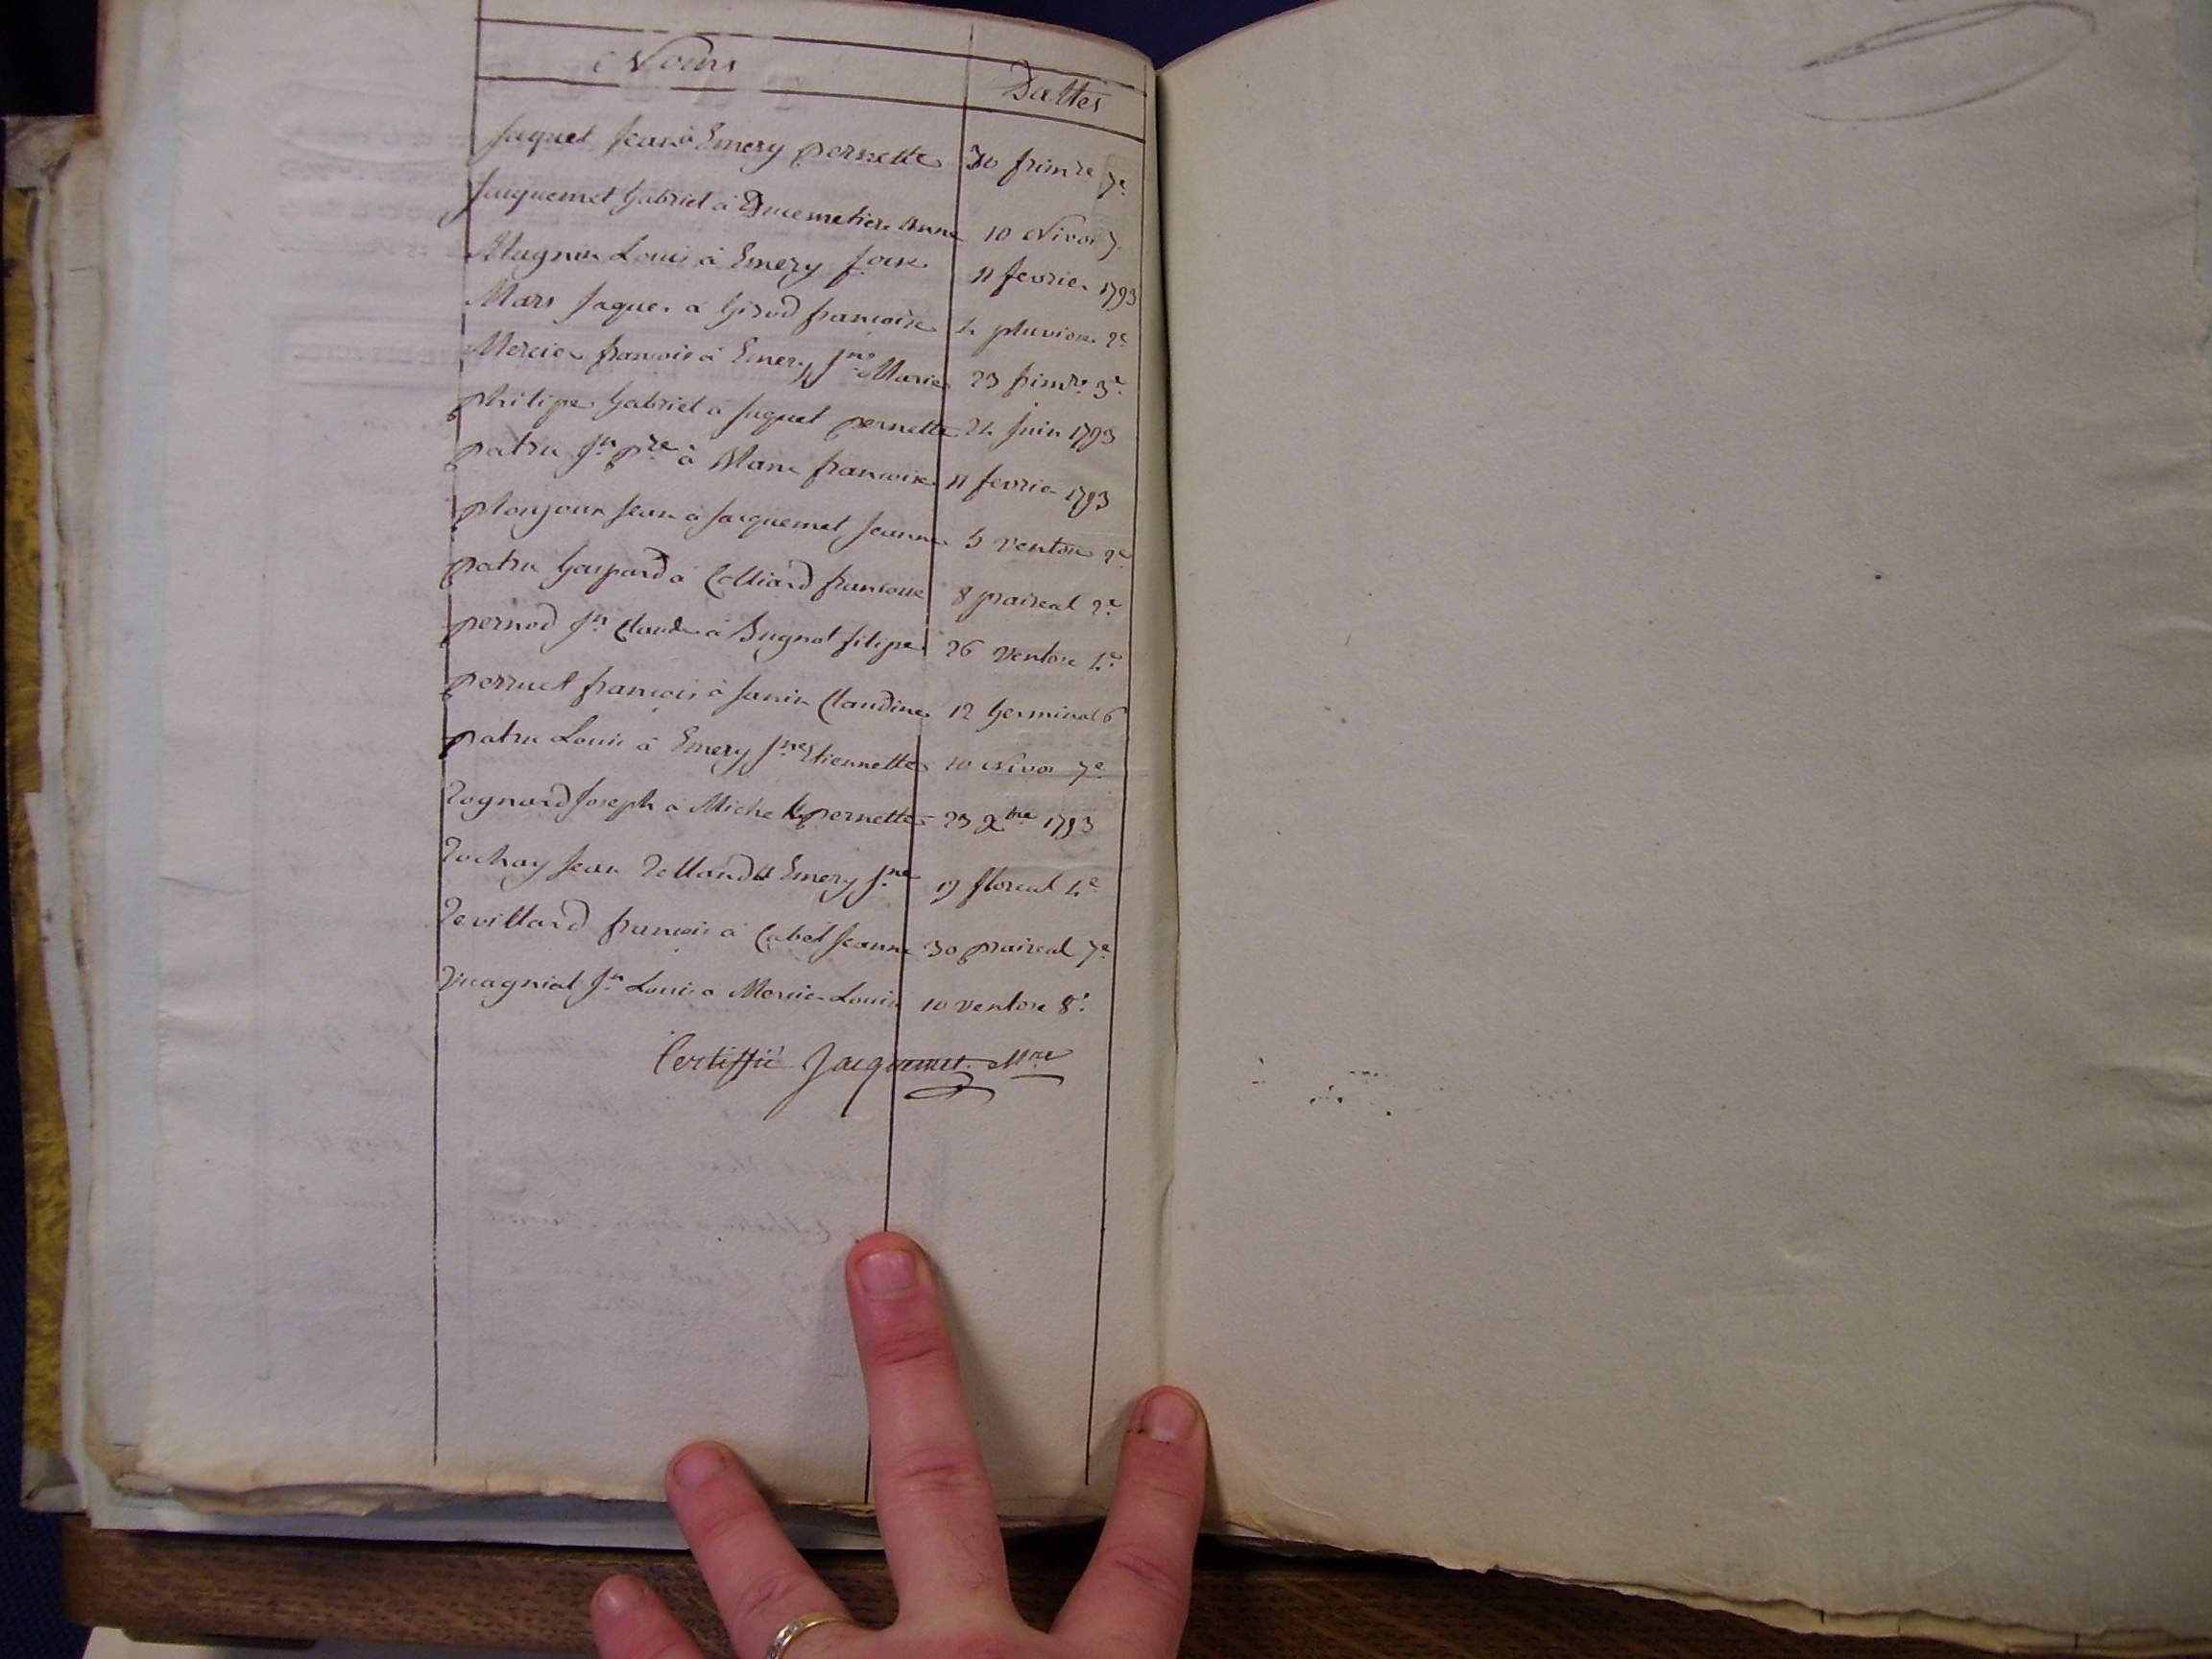 Noms Dattes
Jaquet Jean à Emery pernette 30 frimre 7e
Jacquemet Gabriel à Ducimetiere Anne 10 Nivos 7
Magnin Louis à Emery 11 fevrier 1793
Mars Jaques à Girod francoise 4 pluviose 2e
Mercier francois à Emery Jne Marie 23 frimre 3e
philipe Gabriel à Jaquet pernette 24 Juin 1793
patru Jn pre à Blanc francoise 11 fevrier 1793
plonjour Jean à Jacquemet Jeanne 5 ventose 2e
patru Gaspard à Colliard francoise 8 praireal 2e
pernod Jn Claude à Bugnot filipe 26 ventose 4e
perruet francois à Janin Claudine 12 Germinal 6
patru Louis à Emery Jne Etiennette 10 Nivos 7e
Rognard Joseph à Michel pernette 23 xbre 1793
Rochay Jean Rolland à Emery Jne 19 floreal 4e
Revillard francois à Cabet Jeanne 30 praireal 7e
Vuagniat Jn Louis à Mercier Louise 10 ventose 8e
Certiffié Jacquemet Mre